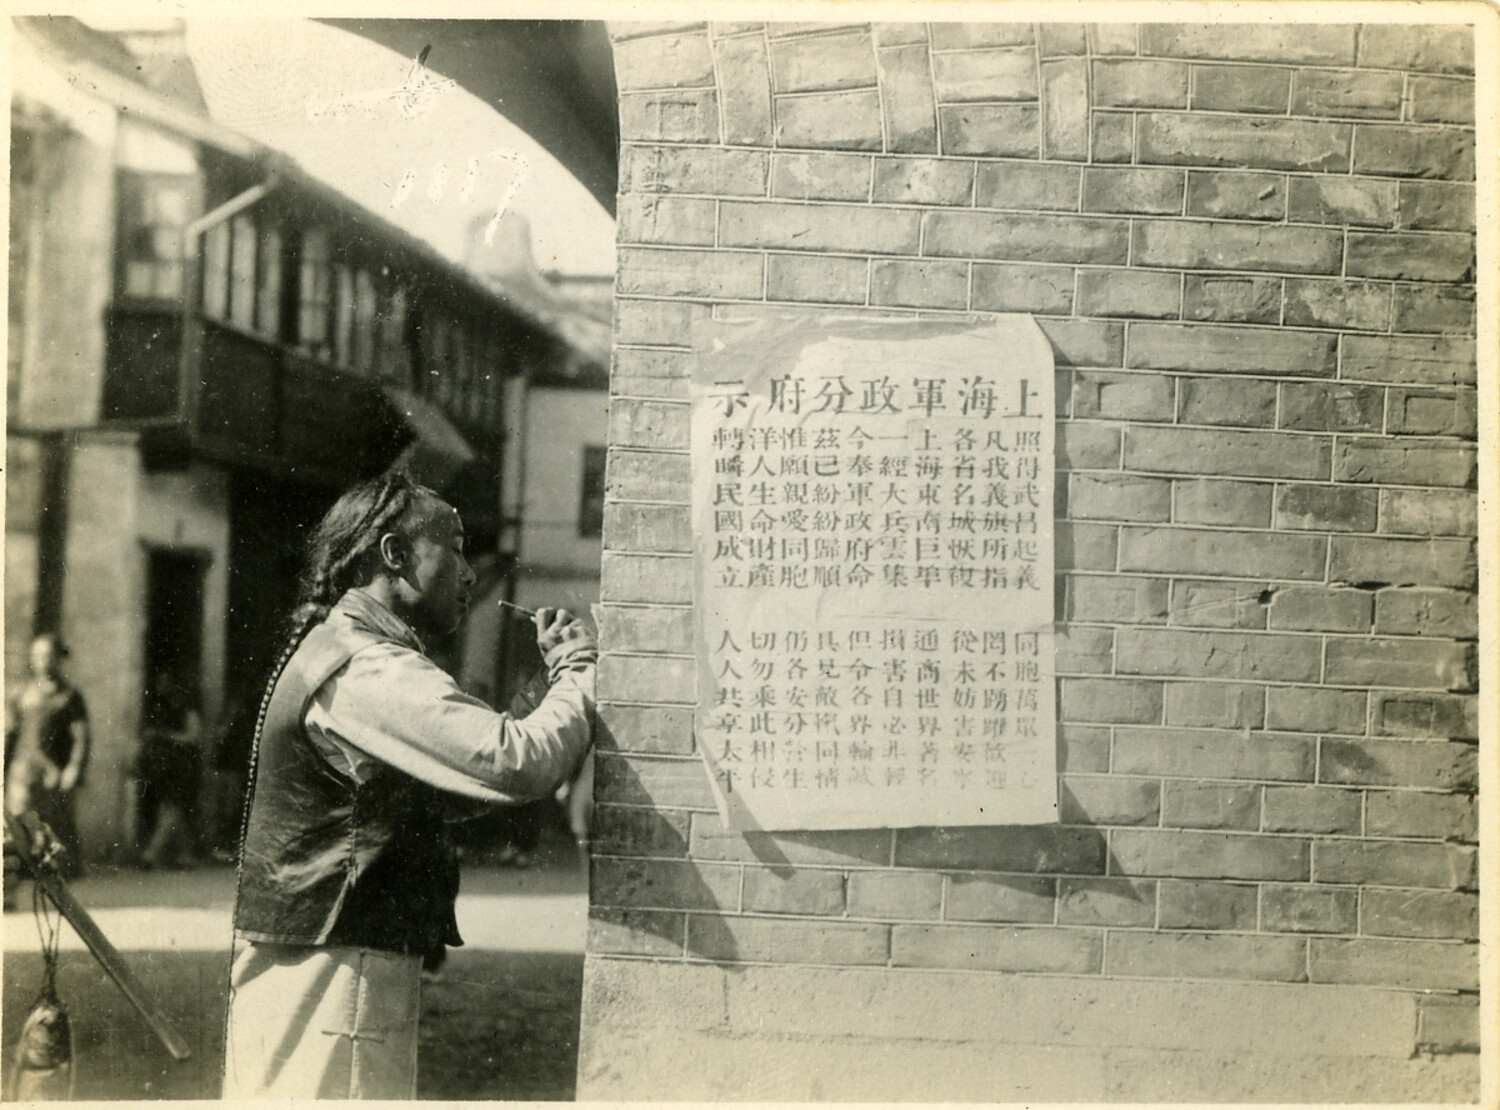 上海軍政分府示
照得武昌起義 同胞萬眾一心
凡我義旗所指 罔不踴躍歡迎
各省名城恢復 從未妨害安寧
上海東南巨埠 通商世界著名
一經大兵雲集 損害自必非輕
今奉軍政府命 但令各界輸誠
茲已紛紛歸順 具見敵愾同情
惟願親愛同胞 仍各安分營生
洋人生命財產 切勿乘此相侵
轉瞬民國成立 人人共享太平